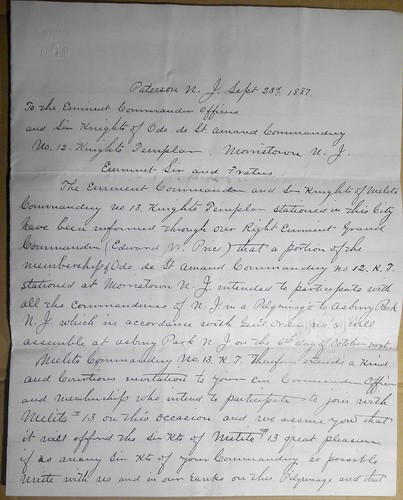 Paterson N. J. Sept 23rd, 1887.
To the Eminent Commander Officers
and Sir Knights of Odo de St Amand Commandery
No. 12. Knights Templar Morristown N. J.
Eminent Sir and Fratres
The Eminent Commander and Sir Knights of Melita
Commandery No 13. Knights Templar stationed in this City
have been informed through our Right Eminent Grand
Commander (Edward W. Price) that a portion of the
membership of Odo de St Amand Commandery no 12. K. T.
stationed at Morristown N. J. intended to participate with
all the Commanderies of N. J in a Pilgrimage to Asbury Park
N. J. which in accordance with Genl Order, no. 3, will
assemble at Asbury Park N. J on the 6th day of October next
Melita Commandery No. 13. K. T. extends a Kind
and Courteous invitation to your Em Commander Officers
and membership who intend to participate to join with
Melita 13 on this occasion and we assure you that
it will afford the Sir Kts of Melita 13 great pleasure
if as many Sir Kts of your Commandery as possible
Unite with us and in our ranks on this Pilgrimage and that